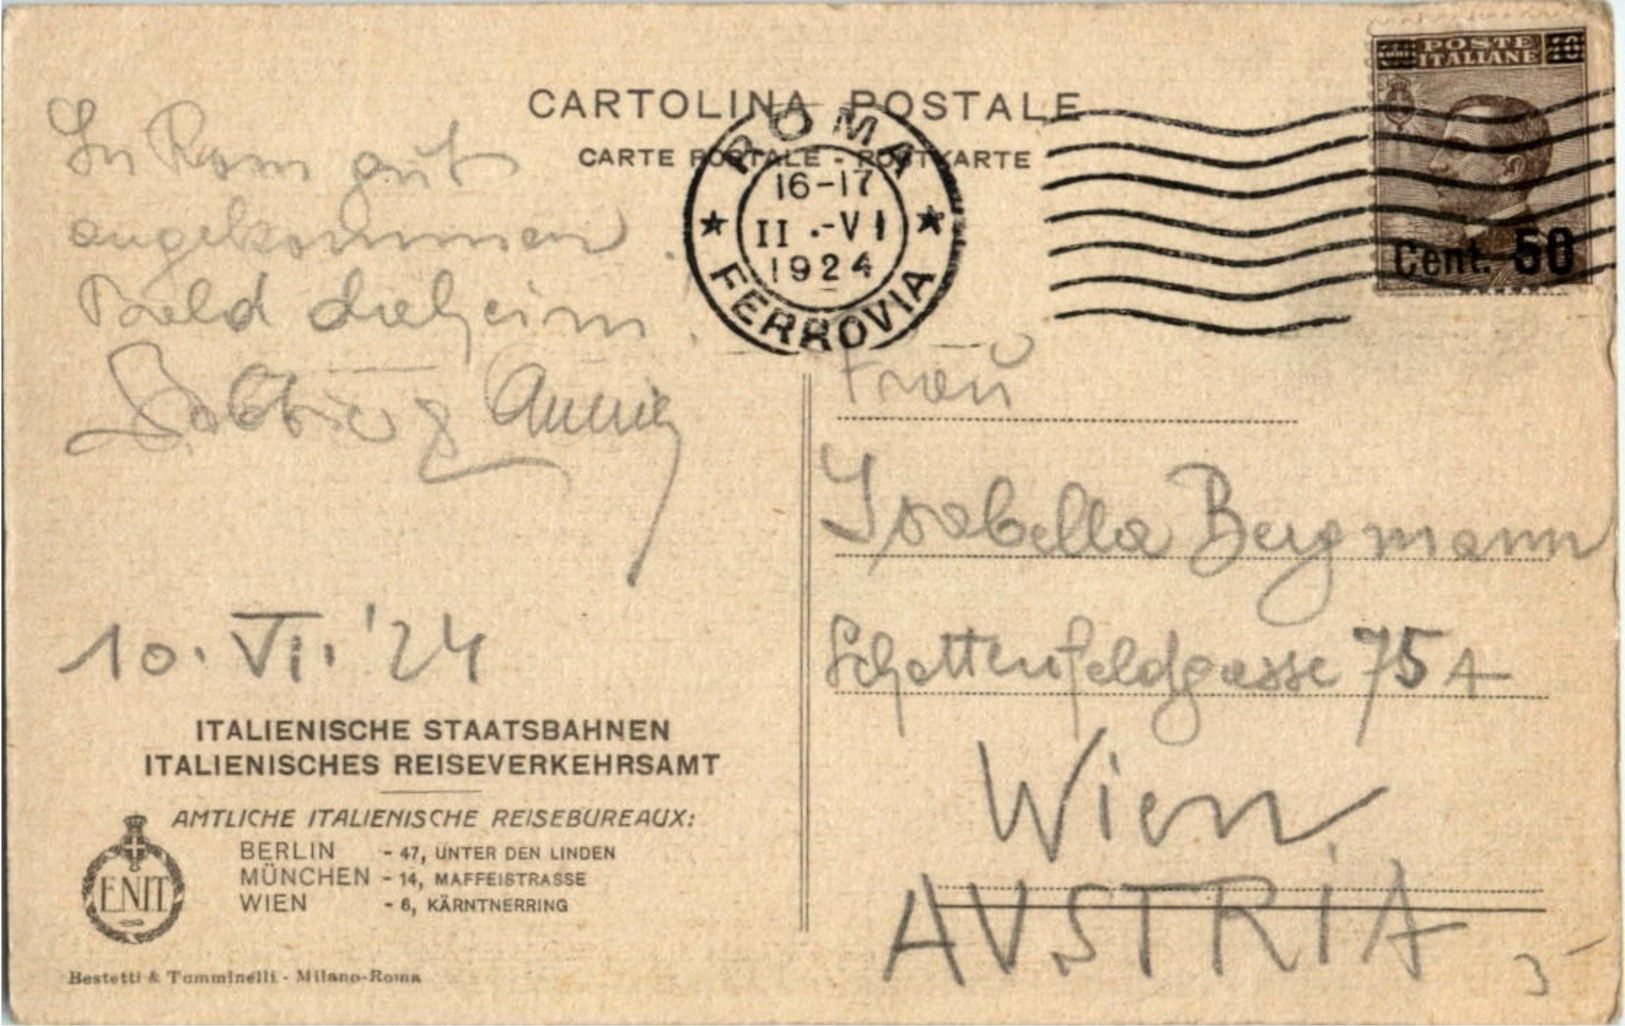 CARTOLINA POSTALE
CARTE POSTALE - POSTKARTE
POSTE
ITALIANE
40
Cent. 50
ROMA
16-17
11 .-VI
1924
FERROVIA
In Rom gut
angekommen.
Bald daheim.
Annie
10. VI. '24
Frau
Isabella Bergmann
Schottenfeldgasse 75A
Wien
AUSTRIA
ITALIENISCHE STAATSBAHNEN
ITALIENISCHES REISEVERKEHRSAMT
AMTLICHE ITALIENISCHE REISEBUREAUX:
BERLIN - 47, UNTER DEN LINDEN
MÜNCHEN - 14, MAFFEISTRASSE
WIEN - 6, KÄRNTNERRING
ENIT
Bestetti & Tumminelli - Milano-Roma